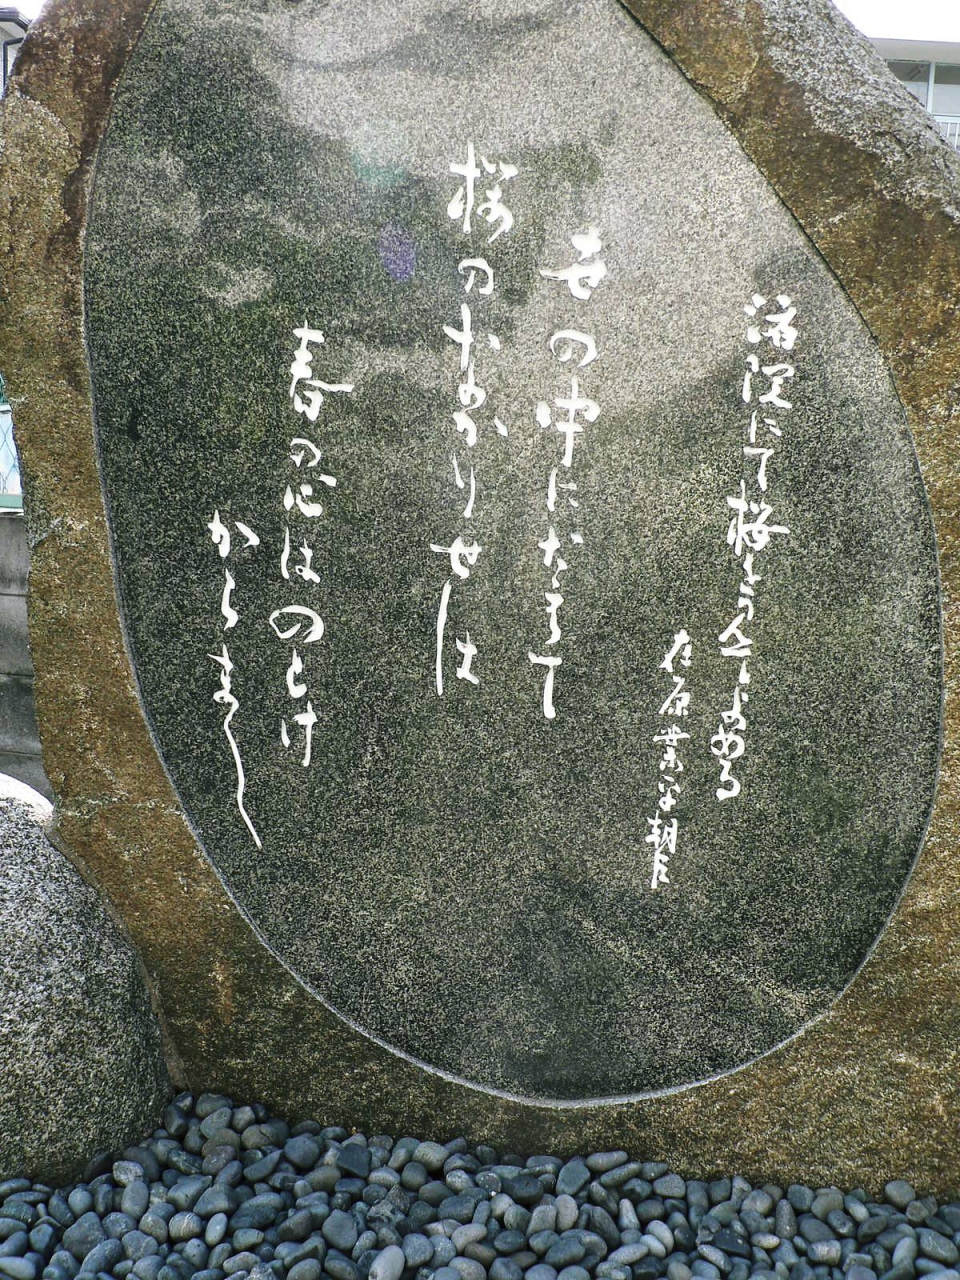 渚院にて桜をみてよめる
在原業平朝臣
世の中にたえて
桜のなかりせは
春の心はのとけ
からまし